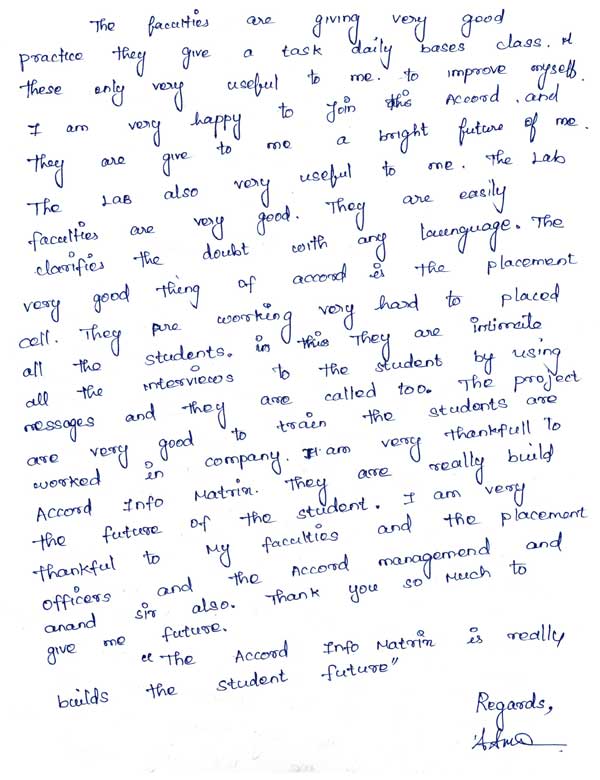 The faculties are giving very good
practice they give a task daily bases class.
these only very useful to me. to improve myself.
I am very happy to Join this Accord. and
they are give to me a bright future of me.
The LAB also very useful to me. The Lab
faculties are very good. They are easily
clarifies the doubt with any launguage. The
very good thing of accord is the placement
cell. They are working very hard to placed
all the students. in this They are intimate
all the interviews to the student by using
messages and they are called too. The project
are very good to train the students are
worked in company. I am very thankfull to
Accord Info Matrix. They are really build
the future of the student. I am very
thankful to My faculties and the placement
officers and the Accord managemend and
anand sir also. Thank you so much to
give me future.
"The Accord Info Matrix is really
builds the student future"
Regards,